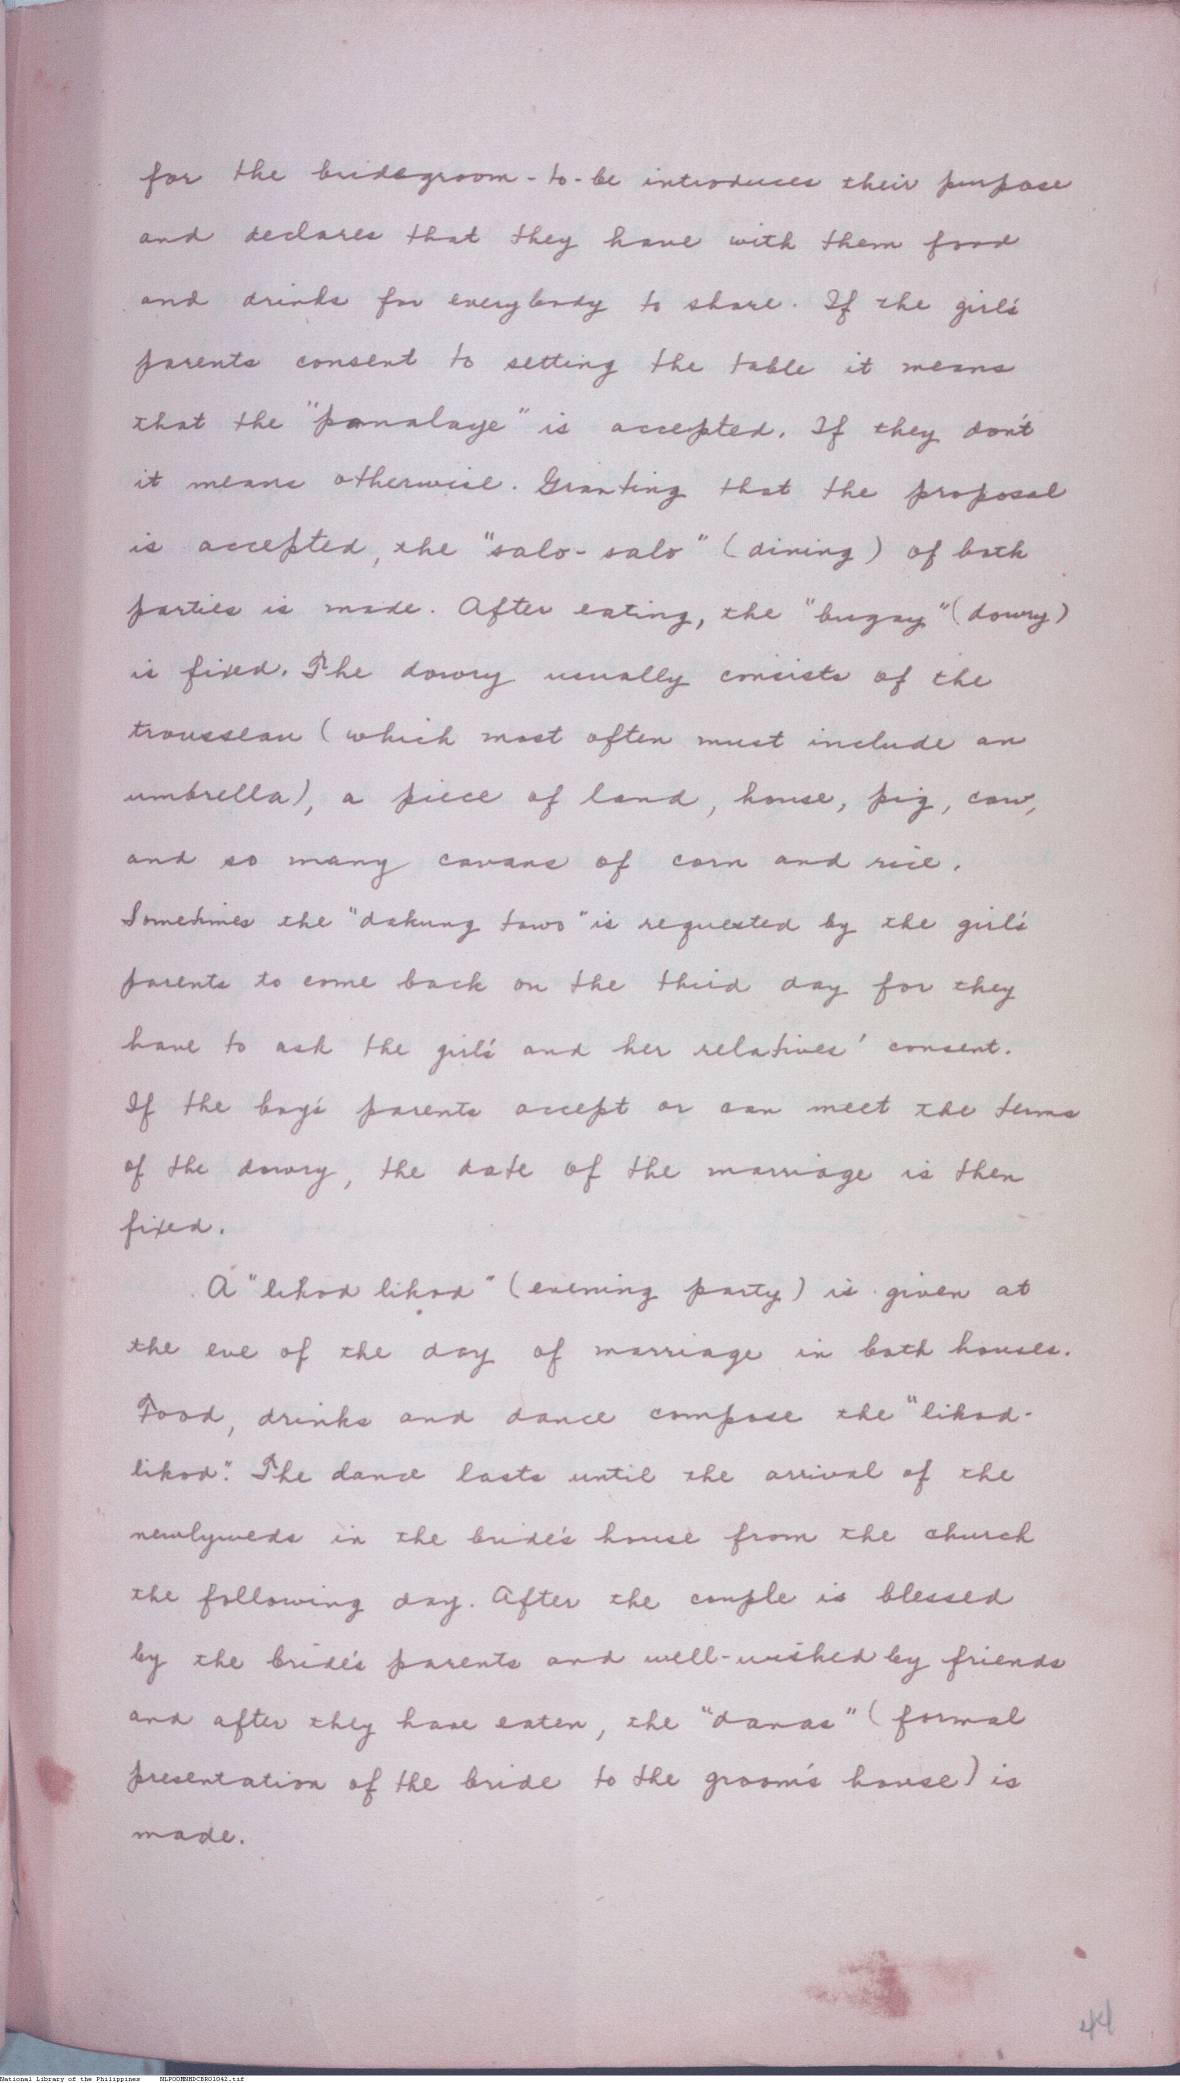 for the bridegroom-to-be introduces their purpose
and declares that they have with them food
and drinks for everybody to share. If the girl's
parents consent to setting the table it means
that the "pamalaye" is accepted. If they don't
it means otherwise. Granting that the proposal
is accepted, the "salo-salo" (dining) of both
parties is made. After eating, the "bugay" (dowry)
is fixed. The dowry usually consists of the
trousseau (which most often must include an
umbrella), a piece of land, house, pig, cow,
and so many cavans of corn and rice.
Sometimes the "dakung tawo" is requested by the girl's
parents to come back on the third day for they
have to ask the girl's and her relatives' consent.
If the boy's parents accept or can meet the terms
of the dowry, the date of the marriage is then
fixed.
A "likod likod" (evening party) is given at
the eve of the day of marriage in both houses.
Food, drinks and dance compose the "likod-
likod". The dance lasts until the arrival of the
newlyweds in the bride's house from the church
the following day. After the couple is blessed
by the bride's parents and well-wished by friends
and after they have eaten, the "danas" (formal
presentation of the bride to the groom's house) is
made.
44
National Library of the Philippines NLPOOMNHDCBRO1042.tif